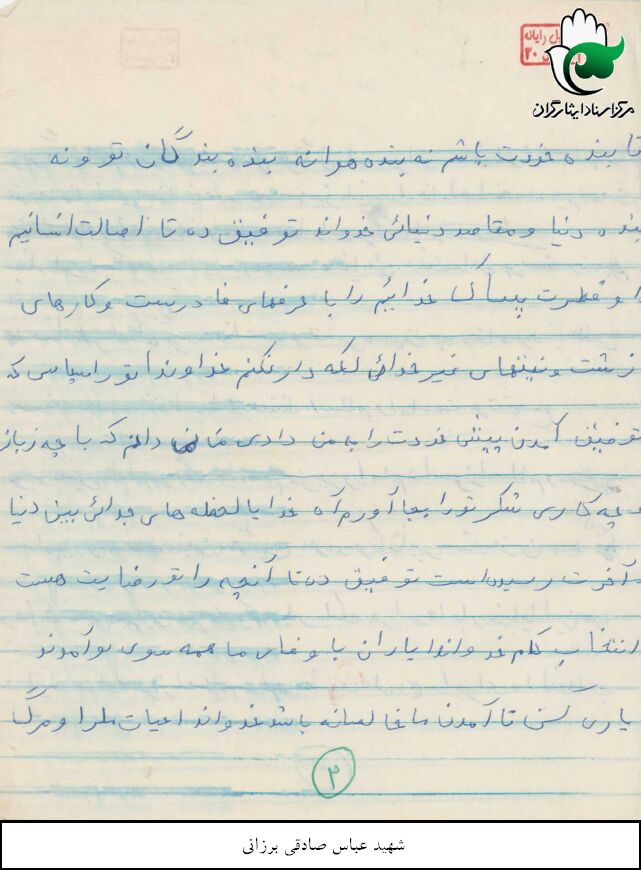 مرکز اسناد ایثارگران
تا بنده خودت باشم نه بنده هوا نه بنده بندگان تو و نه
بنده دنیا و مقاصد دنیائی خدواند توفیق ده تا اصالت انسانیم
و فطرت پاک خداییم را با حرفهای نادرست و کارهای
زشت و نیتهای غیر خدائی لکه دار نکنم خداوندا تو را سپاس که
توفیق آمدن پیش خودت را به من دادی دانم که با چه زبان
و چه کاری شکر تو را بجا آورم آه خدایا لحظه های جدائی بین دنیا
و آخرت رسیده است توفیق ده تا آنچه را تو رضایت هست
انتخاب کنم خدواندا یاران با وفای ما همه سوی تو آمدند
یاری کن تا آمدن ما خالصانه باشد خدواندا حیات ما را و مرگ
۲
شهید عباس صادقی برزانی